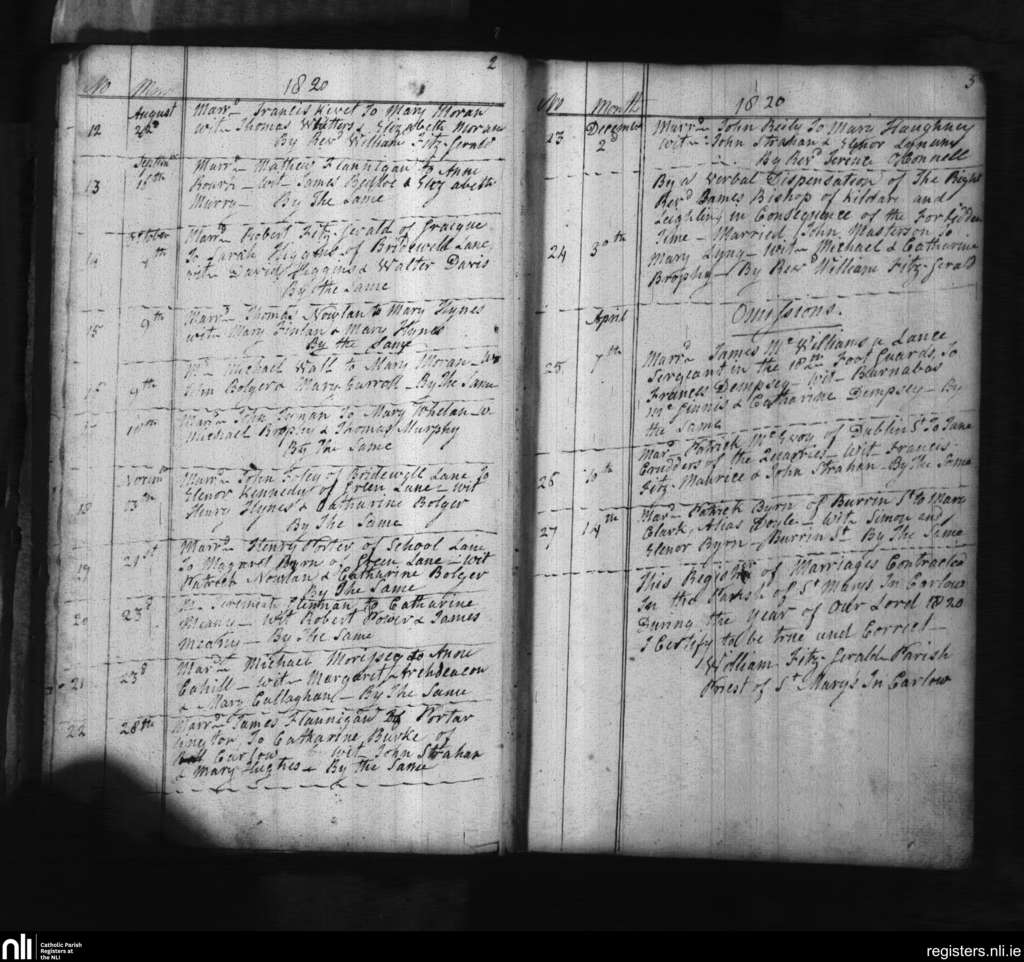 2
No
1820
12
August
22d
Marrd Francis Kivet To Mary Moran
wit Thomas Whitters & Elizabeth Moran
By Revd William Fitz-Gerald
13
15th
Marrd Mathew Flannigan to Anne
wit James & Elizabeth
Murry By The Same
October
4th
Marrd Robert Fitz-Gerald of Graigue
To Sarah Higgins of Bridewell Lane
with David Higgins & Walter Davis
By the Same
15
9th
Marrd Thomas Nowlan to Mary Hynes
wit Mary Finlan & Mary Hynes
By the Same
9th
Md Michael Wall to Mary Moran W
John Bolger & Mary Carroll By The Same
Marrd John To Mary Whelan W
Michael Brophy & Thomas Murphy
By The Same
18
13th
Marrd John Foley of Bridewell Lane To
Elenor Kennedy of Green Lane wit
Henry Hynes & Catharine Bolger
By The Same
19
21st
Marrd Henry Porter of School Lane
To Magaret Byrn of Green Lane wit
Patrick Nowlan & Catharine Bolger
By The Same
20
23d
to Catharine
Meany wit Robert Power & James
Meany By The Same
21
23d
Mard Michael Moripsey to Anne
Cahill wit Margaret Archdeacon
& Mary Callaghan By The Same
22
28th
Marrd James Flannigan of Portar
lington To Catharine Burke of
Carlow wit John Strahan
& Mary Hughes By the Same
3
No
Month
1820
23
December
2d
Marrd John Reily To Mary Haughney
wit John Strahan & Elenor Lynam
By Revd Terence OConnell
By a Verbal Dispensation of The Right
Revd James Bishop of Kildare and
Leighlin in Consequence of the Forbidden
24
30th
Time Married John Masterson To
Mary Lyng wit Michael & Catharine
Brophy By Revd William Fitz-Gerald
Omissions.
April
25
7th
Marrd James Mc Williams a Lance
Sergeant in the 18th Foot Guards, To
Frances Dempsey wit Barnabas
Mc Ginnis & Catharine Dempsey By
the Same
26
10th
Mard Patrick Mc Evoy of Dublin St To Jane
of the Quarries wit Francis
Fitz-Maurice & John Strahan By The Same
27
14th
Mard Patrick Byrn of Burrin St to Mary
Clark, Alias Doyle wit Simon and
Elenor Byrn Burrin St By The Same
This Register of Marriages Contracted
In the Parish of St Marys In Carlow
During the year of Our Lord 1820
I Certify to be true and Correct
William Fitz Gerald Parish
Priest of St Marys In Carlow
nli
Catholic Parish
Registers at
the NLI
registers.nli.ie